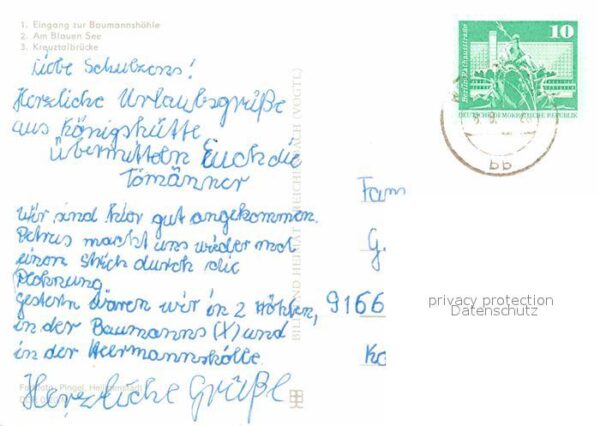 1. Eingang zur Baumannshöhle
2. Am Blauen See
3. Kreuztalbrücke
Liebe Schulzens!
Herzliche Urlaubsgrüße
aus Königshütte
übermitteln Euch die
Tomänner
Wir sind hier gut angekommen.
Petrus macht uns wieder mal
einen Strich durch die
Rechnung.
Gestern waren wir in 2 Höhlen,
in der Baumanns (X) und
in der Hermannshölle.
Herzliche Grüße
BILD UND HEIMAT REICHENBACH (VOGTL)
Fam
G.
9166
Ko
Berlin, Rathausstraße
10
DEUTSCHE DEMOKRATISCHE REPUBLIK
bb
privacy protection
Datenschutz